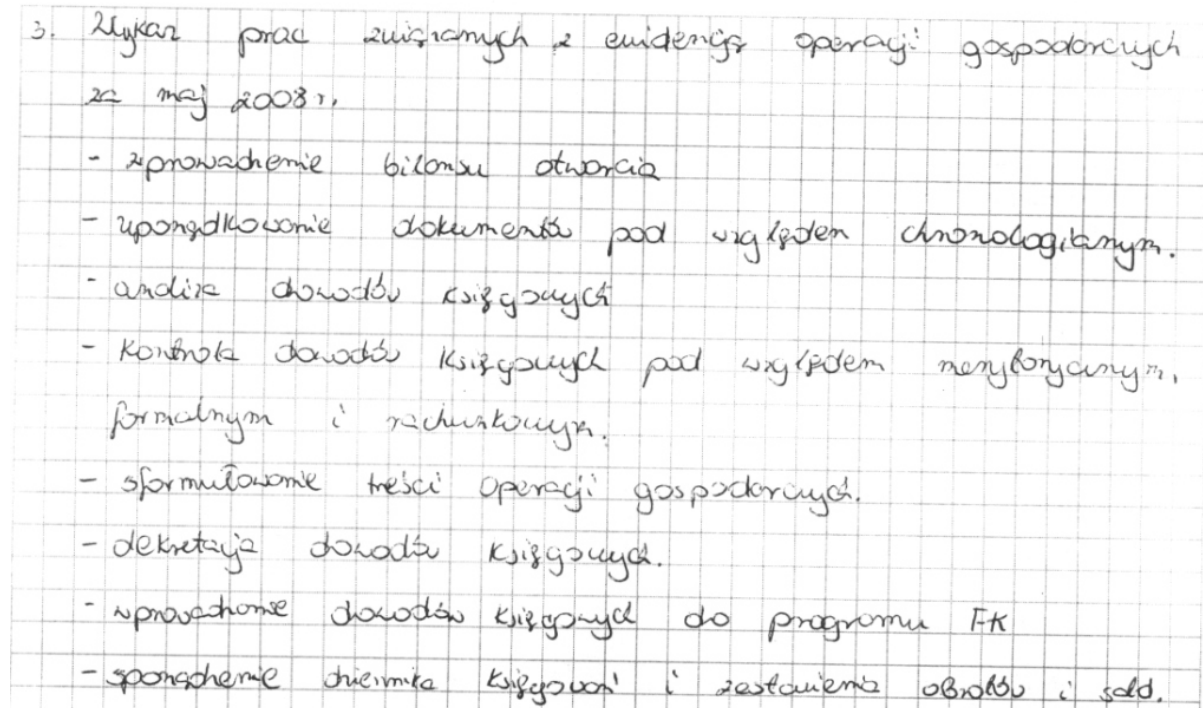 3. Wykaz prac związanych z ewidencją operacji gospodarczych
za maj 2008 r.
- wprowadzenie bilansu otwarcia
- uporządkowanie dokumentów pod względem chronologicznym.
- analiza dowodów księgowych
- kontrola dowodów księgowych pod względem merytorycznym,
formalnym i rachunkowym.
- sformułowanie treści operacji gospodarczych.
- dekretacja dowodów księgowych.
- wprowadzenie dowodów księgowych do programu FK
- sporządzenie dziennika księgowań i zestawienia obrotów i sald.